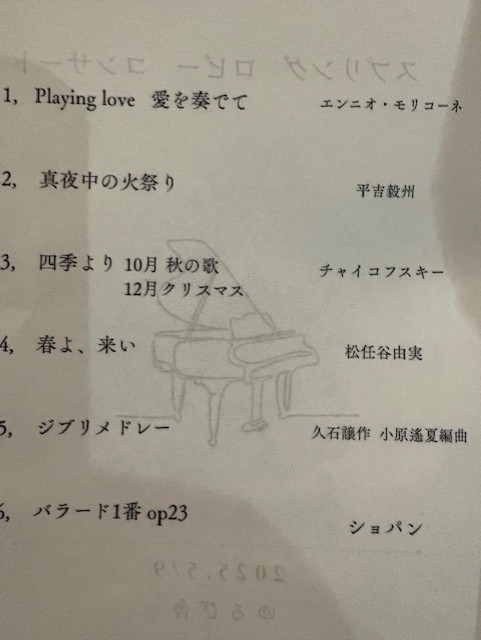 スプリング ロビー コンサート
1, Playing love 愛を奏でて エンニオ・モリコーネ
2, 真夜中の火祭り 平吉毅州
3, 四季より 10月 秋の歌 チャイコフスキー
12月クリスマス
4, 春よ、来い 松任谷由実
5, ジブリメドレー 久石譲作 小原遙夏編曲
6, バラード1番 op23 ショパン
2025.5/9
ゆるび舎